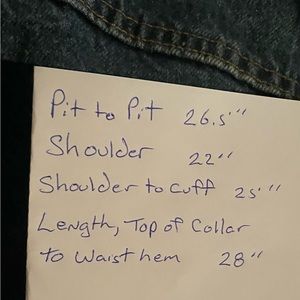 Pit to Pit 26.5"
Shoulder 22"
Shoulder to Cuff 25"
Length, Top of Collar
to Waist hem 28"